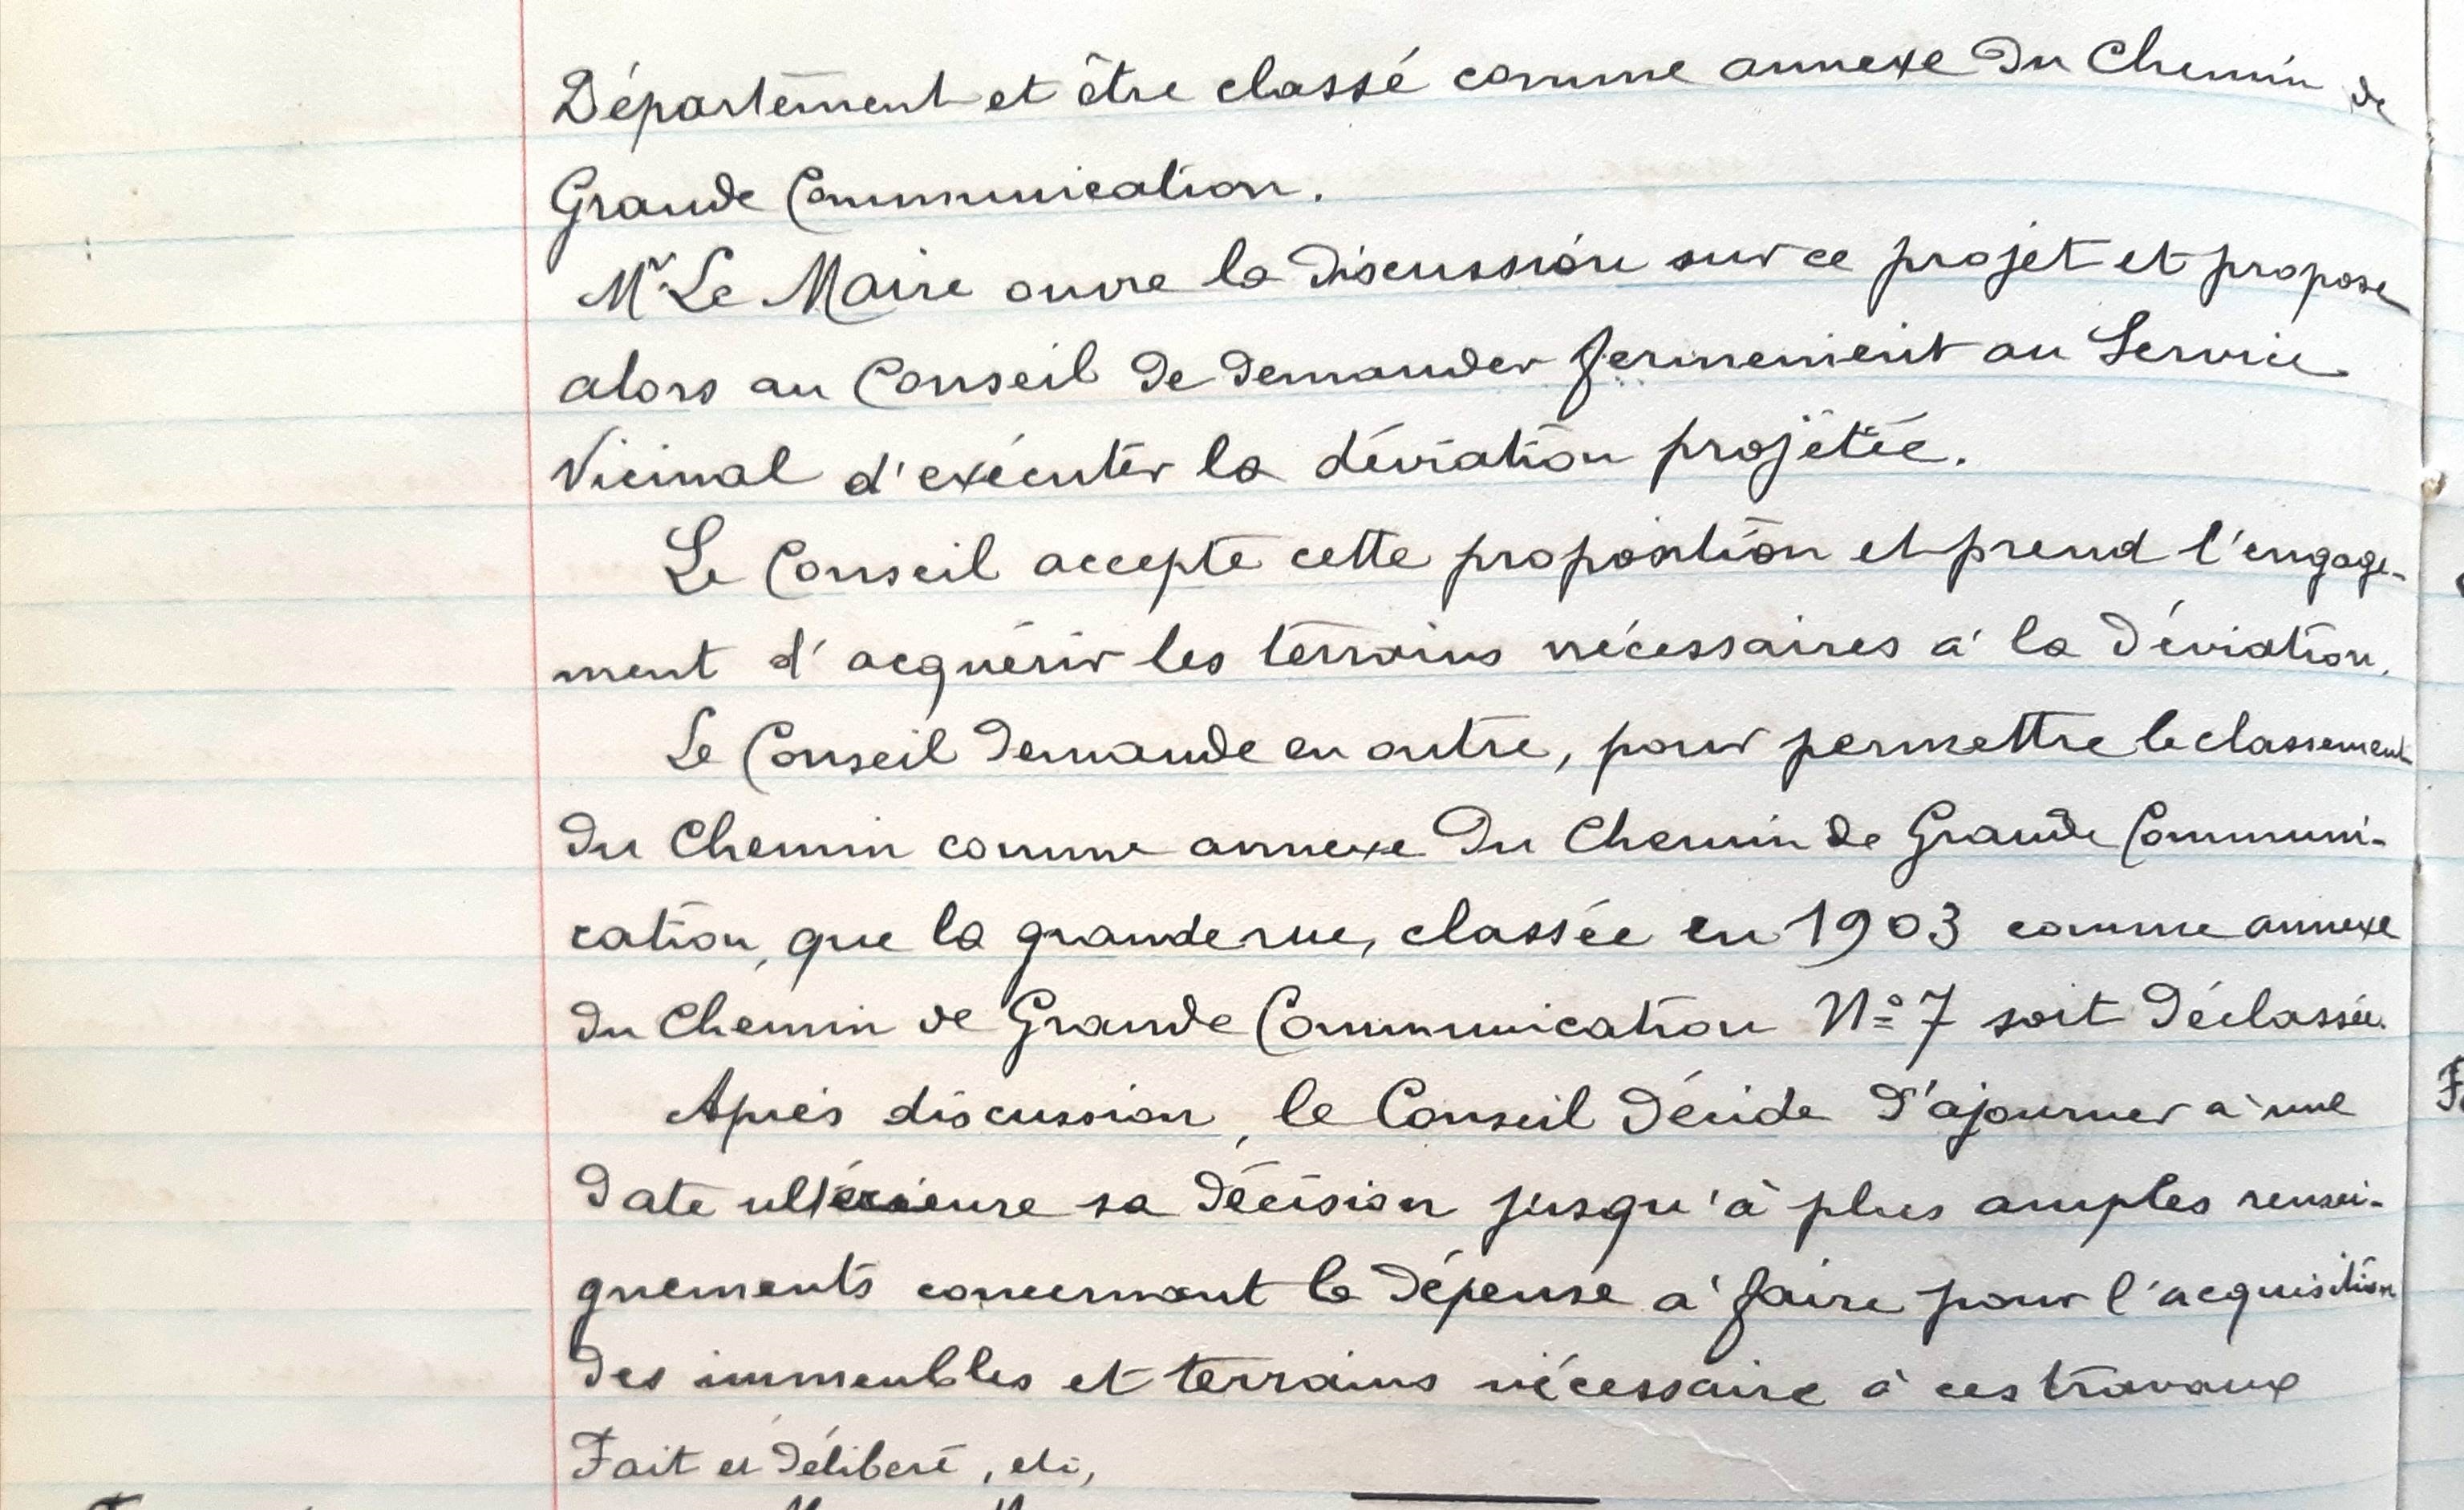 Département et être classé comme annexe du Chemin de
Grande Communication.
Mr Le Maire ouvre la discussion sur ce projet et propose
alors au Conseil de demander fermement au Service
Vicinal d'exécuter la déviation projetée.
Le Conseil accepte cette proposition et prend l'engage-
ment d'acquérir les terrains nécessaires à la déviation.
Le Conseil demande en outre, pour permettre le classement
du Chemin comme annexe du Chemin de Grande Communi-
cation, que la grande rue, classée en 1903 comme annexe
du Chemin de Grande Communication No 7 soit déclassée.
Après discussion, le Conseil décide d'ajourner à une
date ultérieure sa décision jusqu'à plus amples rensei-
gnements concernant la dépense à faire pour l'acquisition
des immeubles et terrains nécessaire à ces travaux
Fait et délibéré, etc,